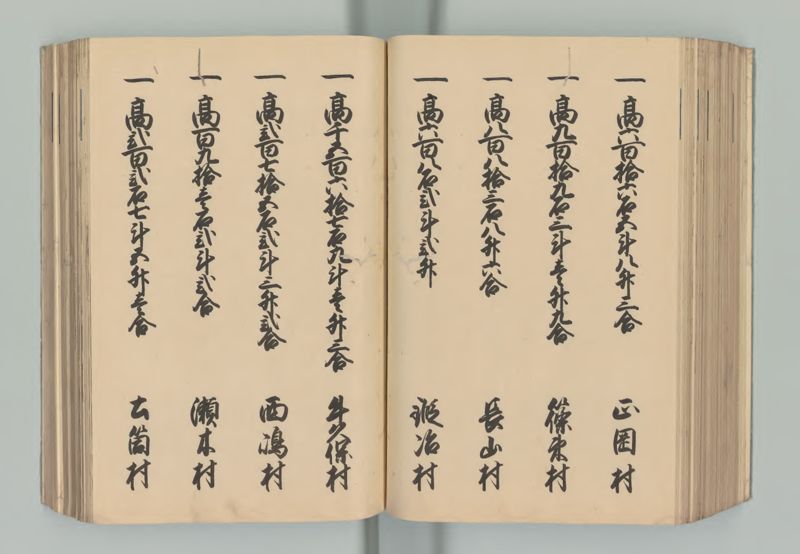 一高六百拾六石五斗八升三合 正岡村
一高九百拾九石三斗壱升九合 篠束村
一高八百八拾三石八升六合 長山村
一高六百八石弐斗弐升 鍛冶村
一高千五百六拾七石九斗壱升三合 牛久保村
一高弐百七拾五石弐斗三升弐合 西嶋村
一高百九拾壱石弐斗弐合 瀬木村
一高弐百弐石七斗五升壱合 古箇村